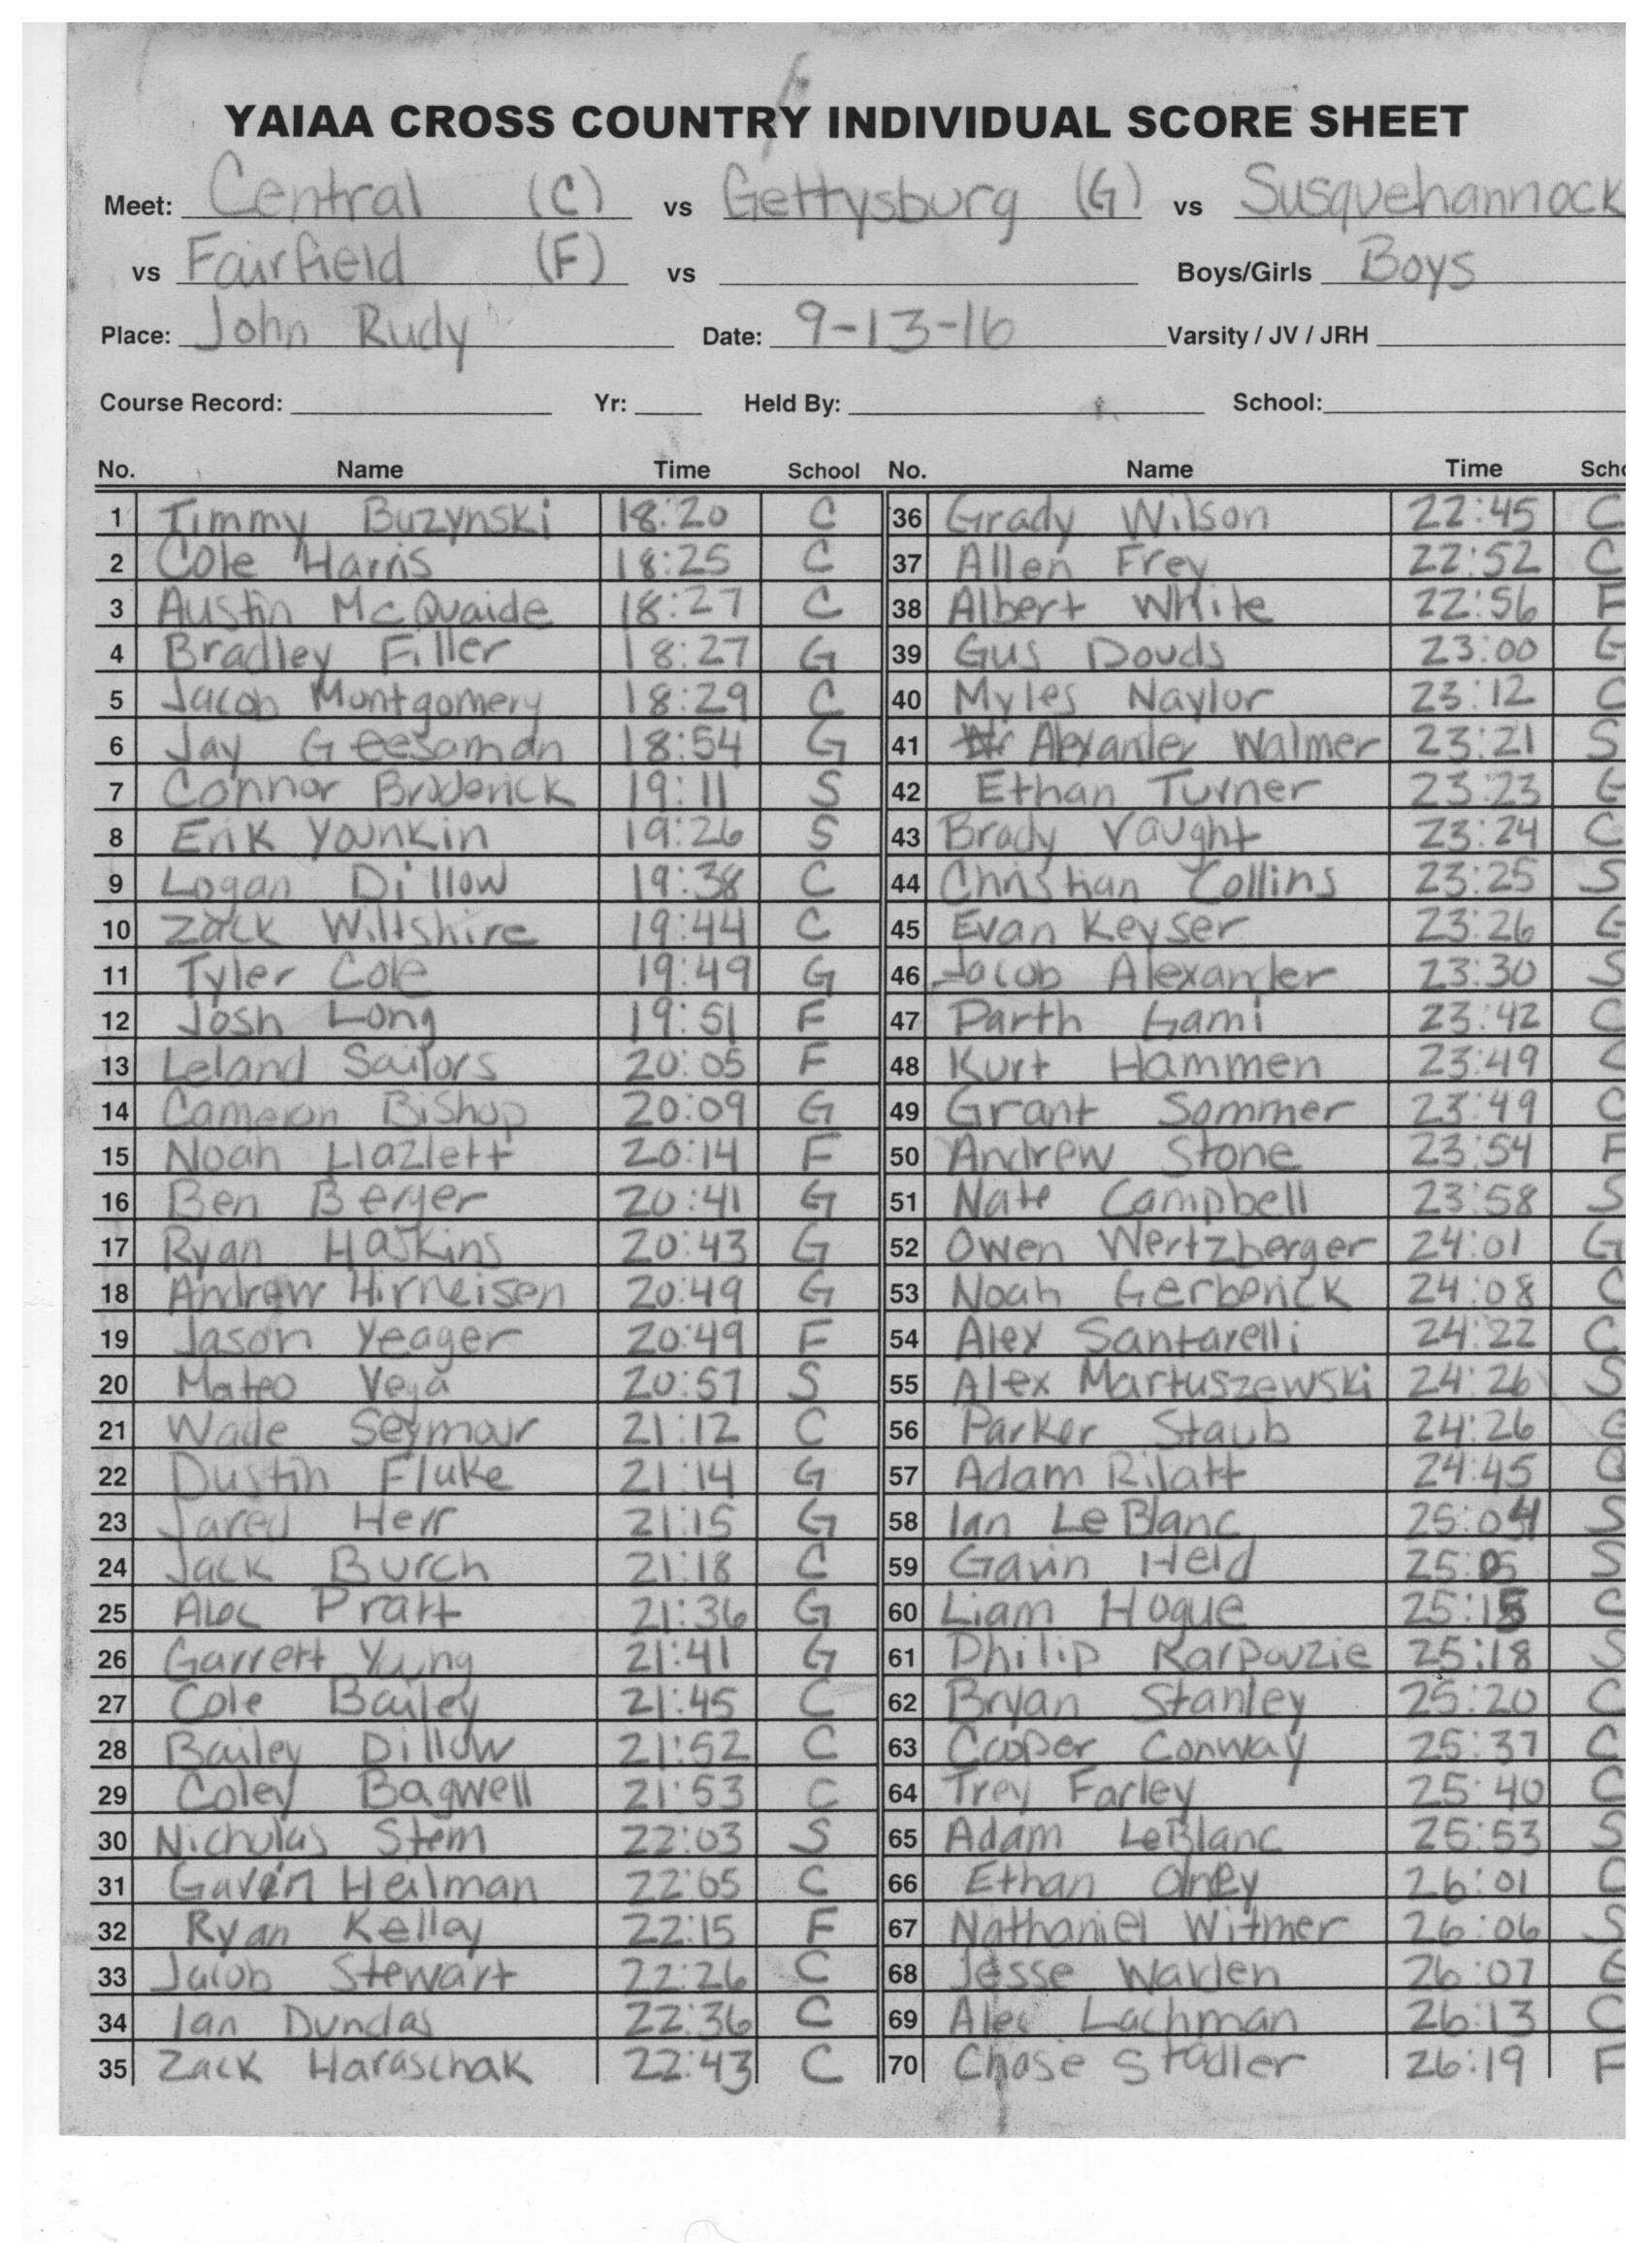 YAIAA CROSS COUNTRY INDIVIDUAL SCORE SHEET
Meet: Central (C) vs Gettysburg (G) vs Susquehannock
vs Fairfield (F) vs Boys/Girls Boys
Place: John Rudy Date: 9-13-16 Varsity / JV / JRH
Course Record: Yr: Held By: School:
No. Name Time School No. Name Time Scho
1 Timmy Buzynski 18:20 C 36 Grady Wilson 22:45 C
2 Cole Harris 18:25 C 37 Allen Frey 22:52 C
3 Austin McQuaide 18:27 C 38 Albert White 22:56 F
4 Bradley Filler 18:27 G 39 Gus Douds 23:00 G
5 Jacob Montgomery 18:29 C 40 Myles Naylor 23:12 C
6 Jay Geesaman 18:54 G 41 Alexander Walmer 23:21 S
7 Connor Broderick 19:11 S 42 Ethan Turner 23:23 G
8 Erik Younkin 19:26 S 43 Brady Vaught 23:24 C
9 Logan Dillow 19:38 C 44 Christian Collins 23:25 S
10 Zack Wiltshire 19:44 C 45 Evan Keyser 23:26 G
11 Tyler Cole 19:49 G 46 Jacob Alexander 23:30 S
12 Josh Long 19:51 F 47 Parth Gami 23:42 C
13 Leland Sailors 20:05 F 48 Kurt Hammen 23:49 C
14 Cameron Bishop 20:09 G 49 Grant Sommer 23:49 C
15 Noah Hazlett 20:14 F 50 Andrew Stone 23:54 F
16 Ben Berger 20:41 G 51 Nate Campbell 23:58 S
17 Ryan Haskins 20:43 G 52 Owen Wertzberger 24:01 G
18 Andrew Hirneisen 20:49 G 53 Noah Gerberick 24:08 C
19 Jason Yeager 20:49 F 54 Alex Santarelli 24:22 C
20 Mateo Vega 20:57 S 55 Alex Martuszewski 24:26 S
21 Wade Seymour 21:12 C 56 Parker Staub 24:26
22 Dustin Fluke 21:14 G 57 Adam Rilatt 24:45
23 Jared Herr 21:15 G 58 Ian LeBlanc 25:04 S
24 Jack Burch 21:18 C 59 Gavin Held 25:05 S
25 Alec Pratt 21:36 G 60 Liam Hogue 25:15 C
26 Garrett Yung 21:41 G 61 Philip Karpouzie 25:18 S
27 Cole Bailey 21:45 C 62 Bryan Stanley 25:20 C
28 Bailey Dillow 21:52 C 63 Cooper Conway 25:37 C
29 Coley Bagwell 21:53 C 64 Trey Farley 25:40 C
30 Nicholas Stem 22:03 S 65 Adam LeBlanc 25:53 S
31 Gavin Heilman 22:05 C 66 Ethan Olney 26:01 C
32 Ryan Kelley 22:15 F 67 Nathaniel Witmer 26:06 S
33 Jacob Stewart 22:26 C 68 Jesse Warden 26:07 G
34 Ian Dundas 22:36 C 69 Alec Lachman 26:13 C
35 Zack Haraschak 22:43 C 70 Chase Stadler 26:19 F